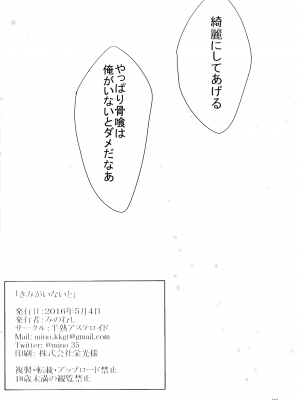 綺麗にしてあげる
やっぱり骨喰は
俺がいないとダメだなあ
「きみがいないと」
発行日:2016年5月4日
発行者:みのむし
サークル:半熟アステロイド
Mail: mino.kkgt@gmail.com
Twitter: @mino 35
印刷: 株式会社栄光様
複製・転載・アップロード禁止
18歳未満の観覧禁止